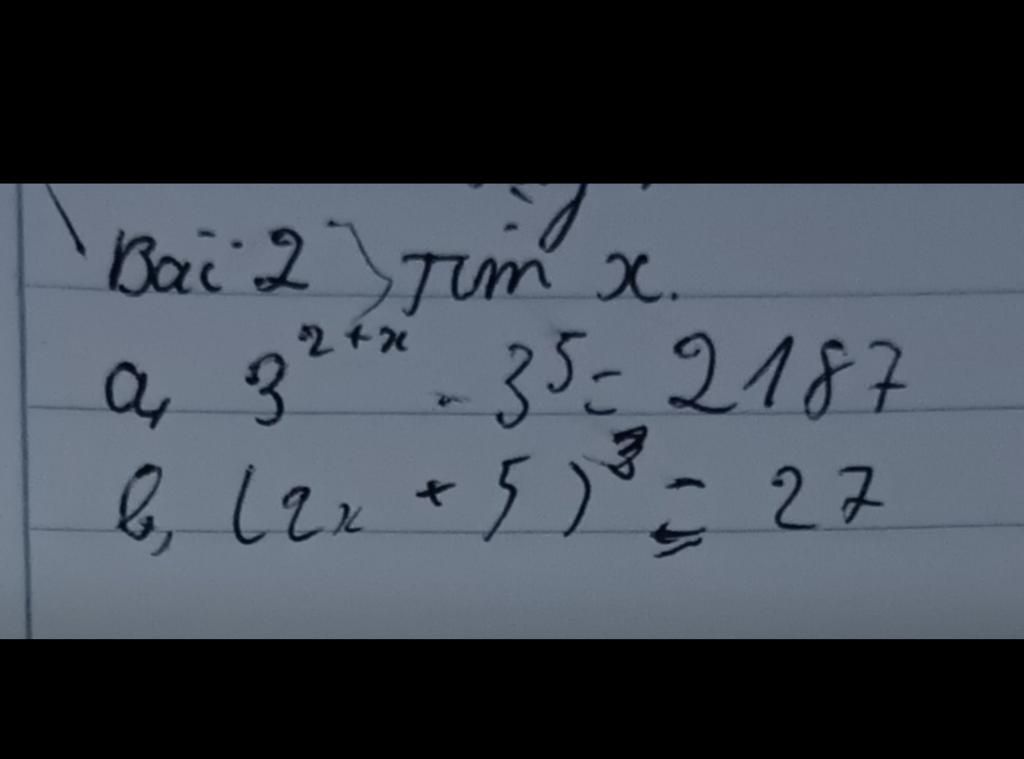 Bài 2) Tìm x.
a, 3^{2+x} - 3^5 = 2187
b, (2x + 5)^3 = 27